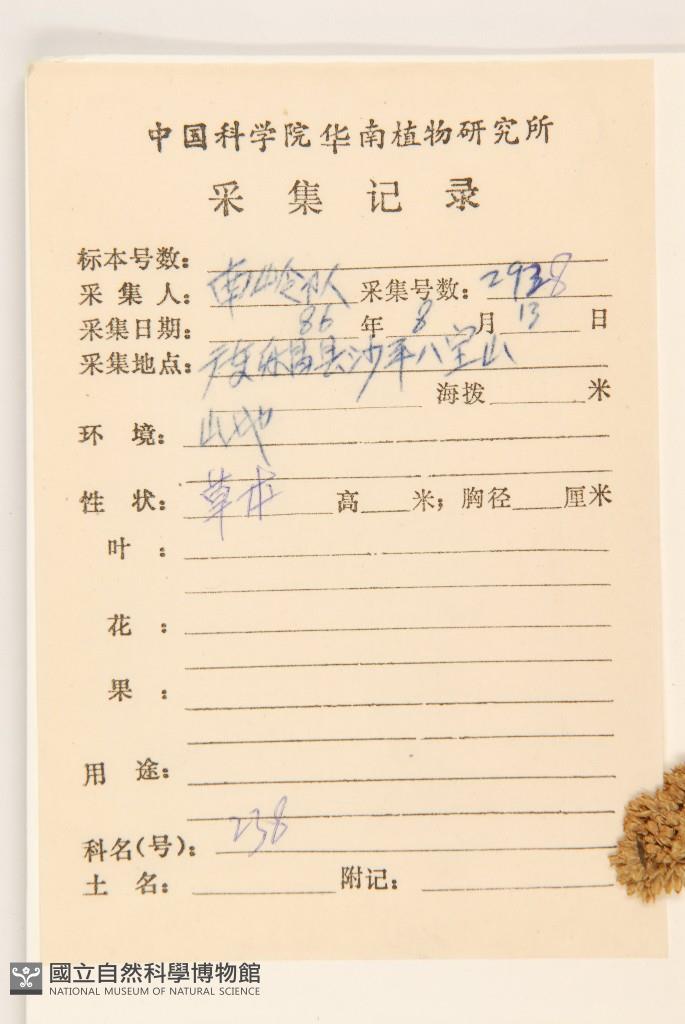 中国科学院华南植物研究所
采集记录
标本号数:
采集人: 南岭队 采集号数: 2938
采集日期: 86年8月13日
采集地点: 广东乐昌县沙平八宝山
海拨 米
环境: 山地
性状: 草本 高 米; 胸径 厘米
叶:
花:
果:
用途:
科名(号): 238
土名: 附记:
國立自然科學博物館
NATIONAL MUSEUM OF NATURAL SCIENCE